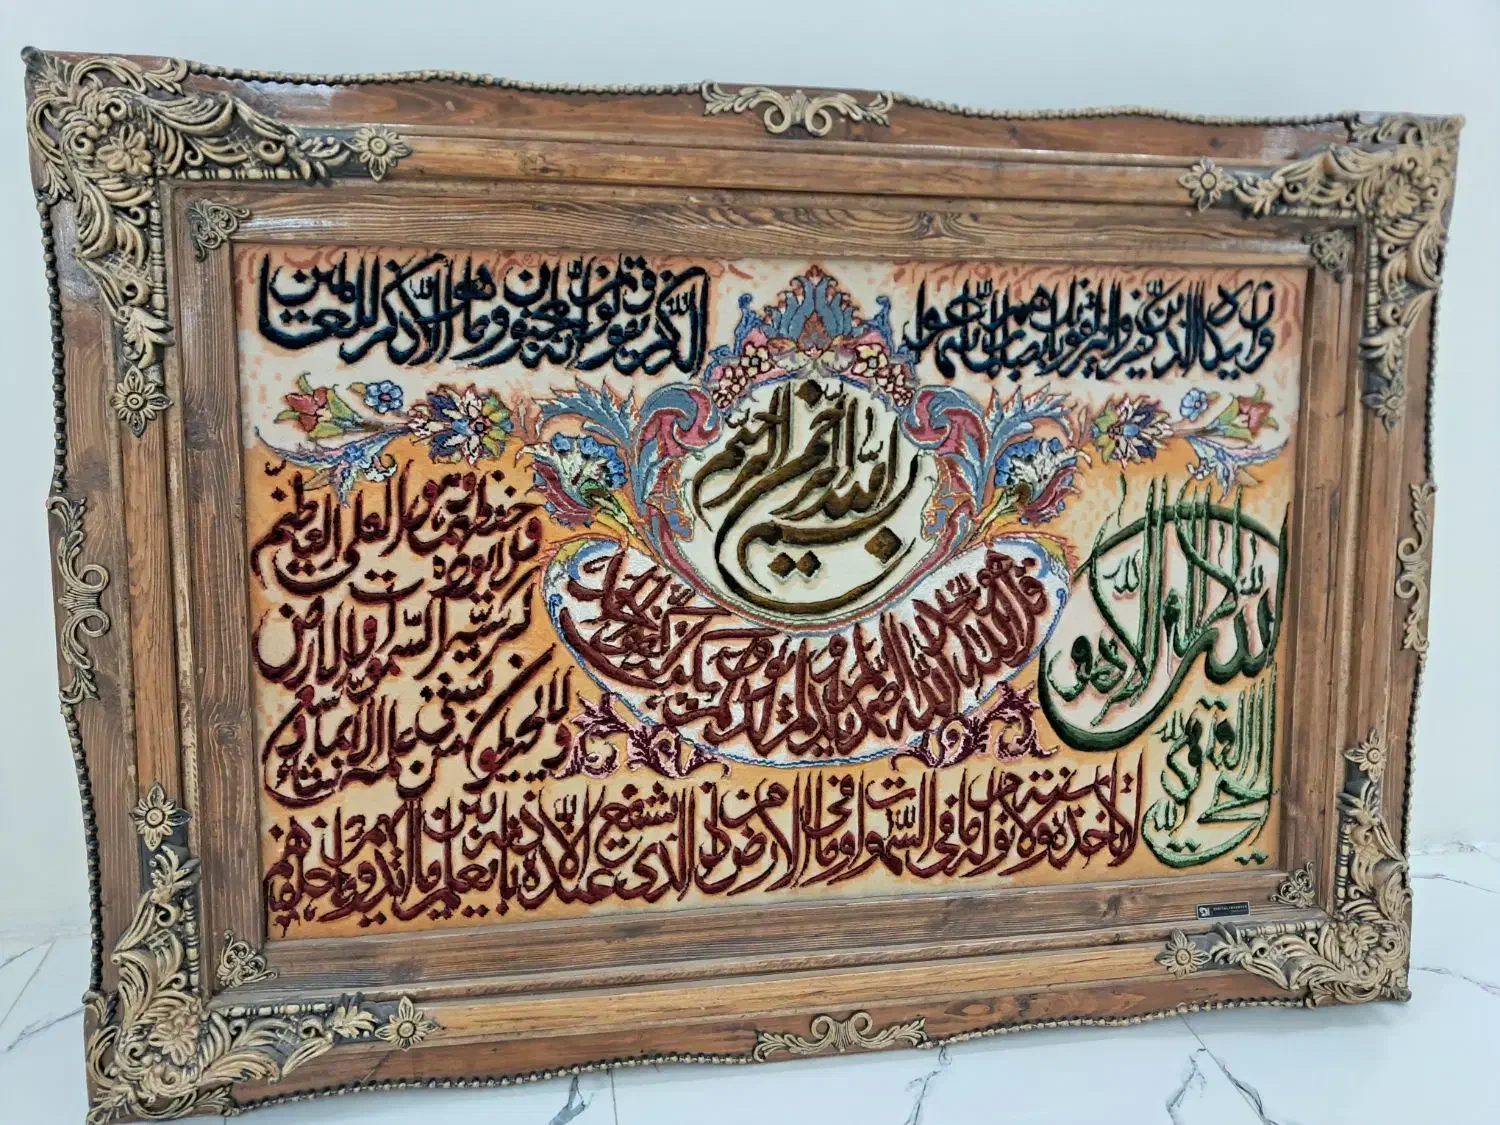 وان يكاد الذين كفروا ليزلقونك بابصارهم لما سمعوا
الذكر ويقولون انه لمجنون وما هو الا ذكر للعالمين
بسم الله الرحمن الرحيم
قل هو الله احد الله الصمد لم يلد ولم يولد ولم يكن له كفوا احد
الله لا اله الا هو
الحي القيوم
لا تاخذه سنة ولا نوم له ما في السموات وما في الارض من ذا الذي يشفع عنده الا باذنه يعلم ما بين ايديهم وما خلفهم
ولا يحيطون بشئ من علمه الا بما شاء وسع
كرسيه السموات والارض
ولا يوده
حفظهما وهو العلي العظيم